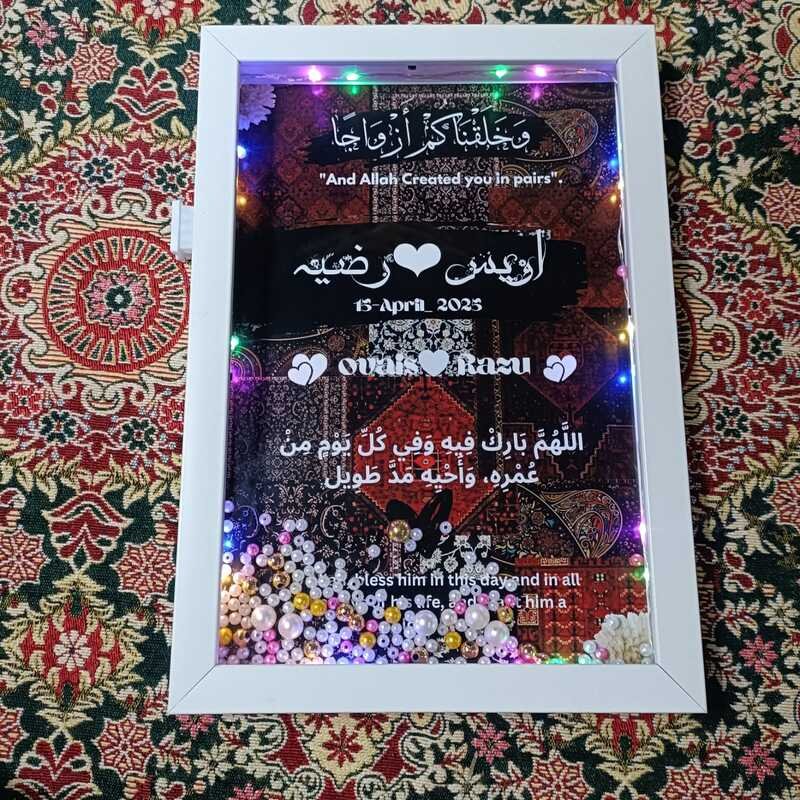 وَخَلَقْنَاكُمْ أَزْوَاجًا
"And Allah Created you in pairs".
أويس رضیہ
15-April_ 2025
ovais Razu
اللَّهُمَّ بَارِكْ فِيهِ وَفِي كُلِّ يَوْمٍ مِنْ
عُمْرِهِ، وَأَحْيِهِ مَدَّ طَوِيل
bless him in this day and in all
his life, and him a